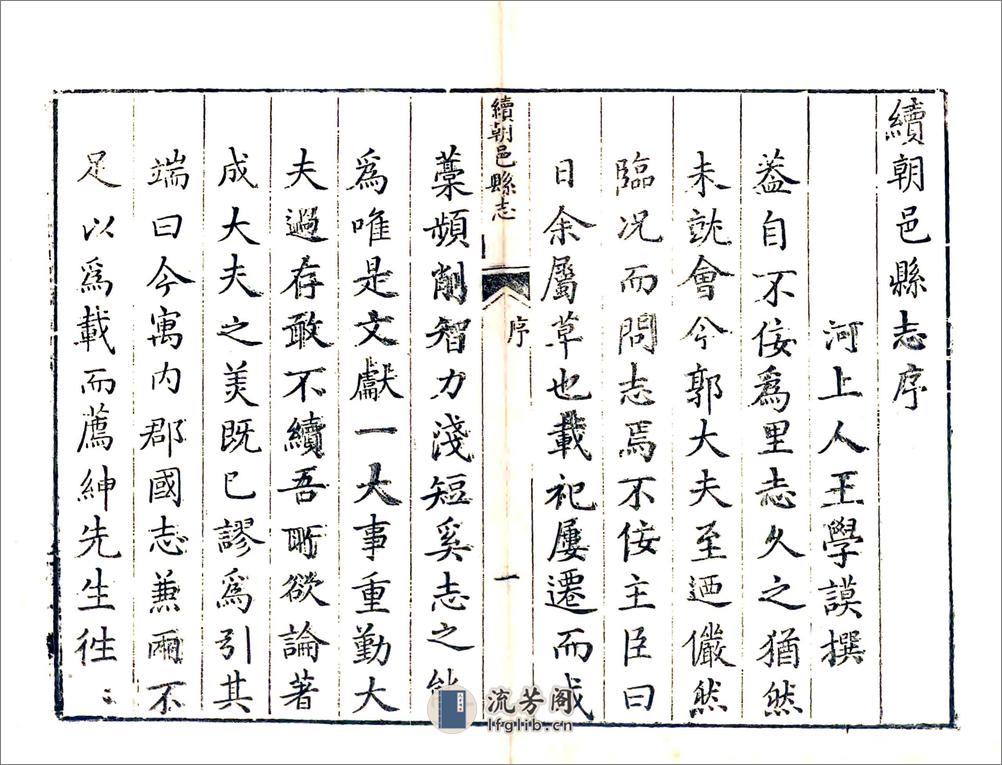 續朝邑縣志序
河上人王學謨撰
葢自不佞爲里志久之猶然
未就會今郭大夫至迺儼然
臨况而問志焉不佞主臣曰
日余屬草也載祀屢遷而成
續朝邑縣志
序
一
藁頻削智力淺短奚志之能
爲唯是文獻一大事重勤大
夫過存敢不續吾所欲論著
成大夫之美既已謬爲引其
端曰今寓内郡國志兼兩不
足以爲載而薦紳先生徃〻
流芳阁
lfglib.cn